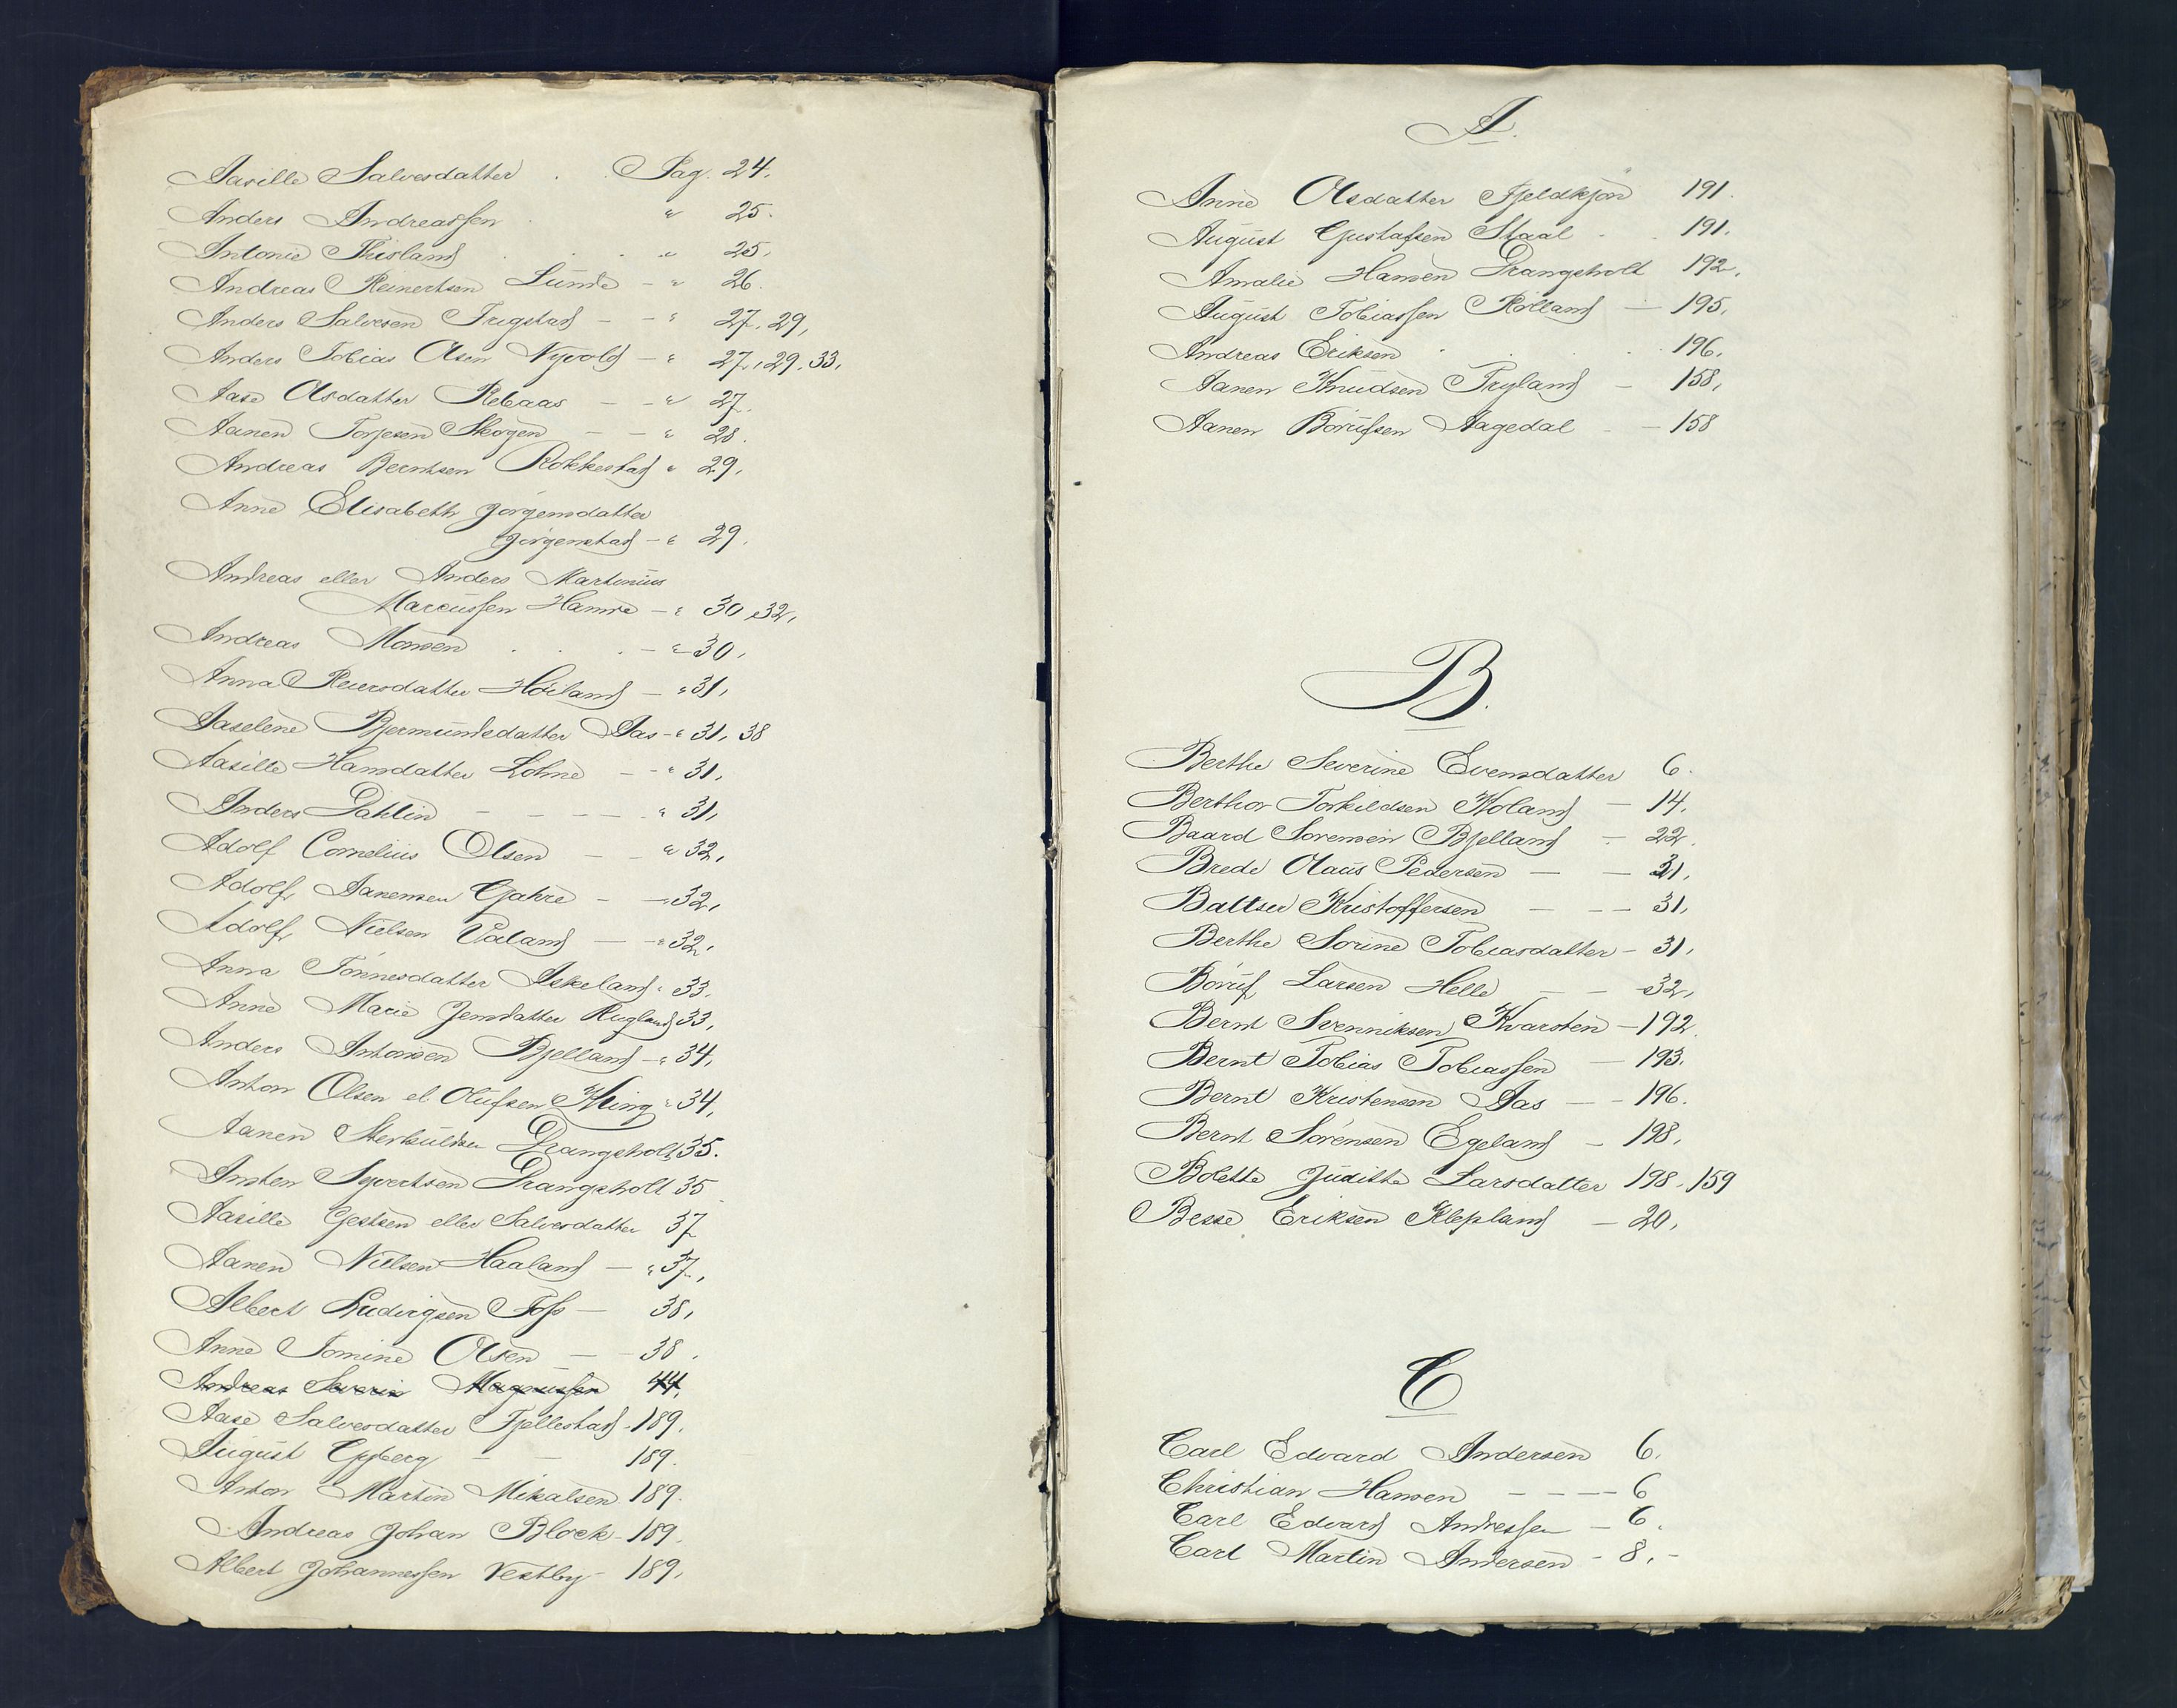 Aasille Salvesdatter . . Pag. 24.
Anders Andreassen . " 25.
Antonie Thisland . . . " 25.
Andreas Reinertsen Lunde - " 26.
Anders Salvesen Frigstad - - " 27, 29,
Anders Tobias Olsen Nyvold - " 27, 29, 33,
Aase Olsdatter Rebaas - - " 27.
Aanen Torjesen Skogen - - " 28.
Andreas Berntsen Rokkestad " 29,
Anne Elisabeth Jörgensdatter
Jörgenstad - " 29.
Andreas eller Anders Martinius
Marcussen Hamre - " 30, 32,
Andreas Monsen . . . - " 30,
Anna Reiersdatter Höiland - " 31,
Aaselene Bjermundsdatter Aas - " 31, 38
Aasille Hansdatter Lohne - - " 31,
Anders Dahlin - - - - - " 31,
Adolf Cornelius Olsen - - " 32,
Adolf Aanensen Gahre - - " 32,
Adolf Nielsen Valand - - " 32,
Anna Tönnesdatter Askeland " 33.
Anne Marie Jensdatter Rugland 33,
Anders Antonsen Bjelland - " 34,
Anton Olsen el. Olufsen Kling " 34,
Aanen Drangsholt 35.
Ansten Syvertsen Drangsholt 35
Aasille Gestsen eller Salvesdatter 37
Aanen Nielsen Haaland - " 37,
Albert Ludvigsen Foss - 38,
Anne Tomine Olsen - - 38.
Andreas Severin Magnussen 44,
Aase Salvesdatter Fjellestad - 189.
August - - 189.
Anton Martin Mikalsen 189.
Andreas Johan Block - 189.
Albert Johannessen Vestby - 189.
A.
Anne Olsdatter Fjeldkjön 191.
August Gustafsen Staal . . 191.
Amalie Hansen Drangsholt 192.
August Tobiassen Rölland - 195.
Andreas Eriksen . . . 196.
Aanen Knudsen Tryland - 158,
Aanen Börufsen Aagedal - 158
B.
Berthe Severine Evensdatter 6.
Berthor Torkildsen Holand - 14.
Baard Sorensen Bjelland - 22.
Brede Olaus Pedersen - - 31,
Baltser Kristoffersen - - - 31,
Berthe Sorine Tobiasdatter - 31,
Böruf Larsen Helle - - 32,
Bernt Svenniksen Kvarsten - 192.
Bernt Tobias Tobiassen - 193.
Bernt Kristensen Aas - - 196.
Bernt Sörensen Egeland - 198,
Bolette Judithe Larsdatter 198, 159
Besse Eriksen Klepland - 20,
C
Carl Edvard Andersen 6.
Christian Hansen - - - - 6
Carl Edvard Andressen - 6.
Carl Martin Andersen - 8, -